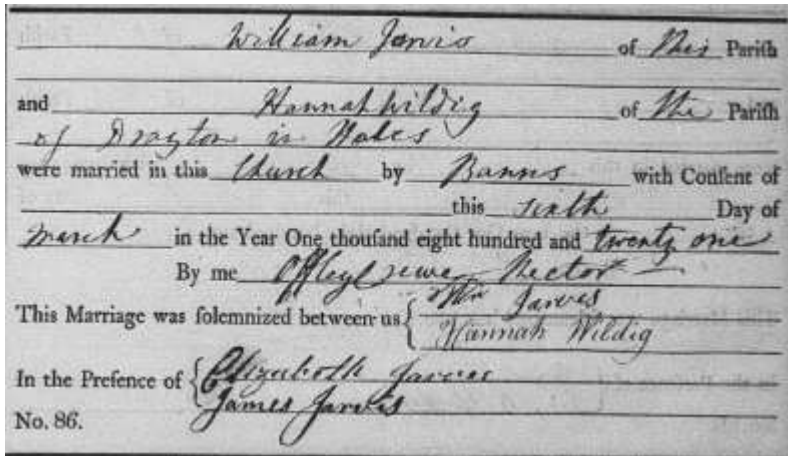 William Jarvis of this Parish
and Hannah Wildig of the Parish
of Drayton in Hales
were married in this Church by Banns with Consent of
this sixth Day of
March in the Year One thousand eight hundred and twenty one
By me Offley Crewe Rector
This Marriage was solemnized between us { Wm Jarvis
Hannah Wildig
In the Presence of { Elizabeth Jarvis
James Jarvis
No. 86.